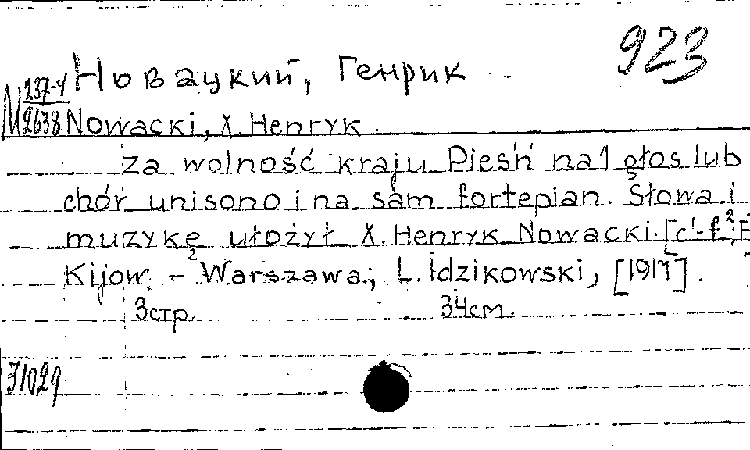 923
Новацкий, Генрик
М 237-4/2638
Nowacki, X. Henryk
Za wolność kraju. Pieśń na 1 głos lub
chór unisono i na sam fortepian. Słowa i
muzykę ułożył X. Henryk Nowacki. [c¹-f²;
Kijow. – Warszawa, L. Idzikowski, [191
3стр. 34см.
31029